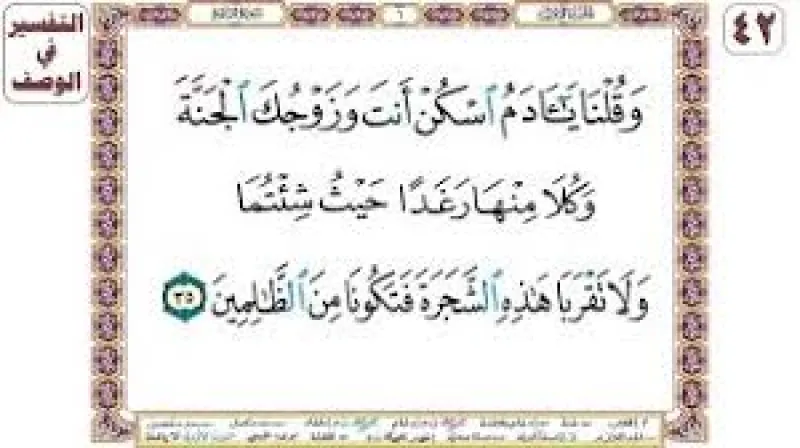 التفسير
في
الوصف
٤٢
٦
وَقُلْنَا يَـٰٓـَٔادَمُ ٱسْكُنْ أَنتَ وَزَوْجُكَ ٱلْجَنَّةَ
وَكُلَا مِنْهَا رَغَدًا حَيْثُ شِئْتُمَا
وَلَا تَقْرَبَا هَـٰذِهِ ٱلشَّجَرَةَ فَتَكُونَا مِنَ ٱلظَّـٰلِمِينَ ٣٥